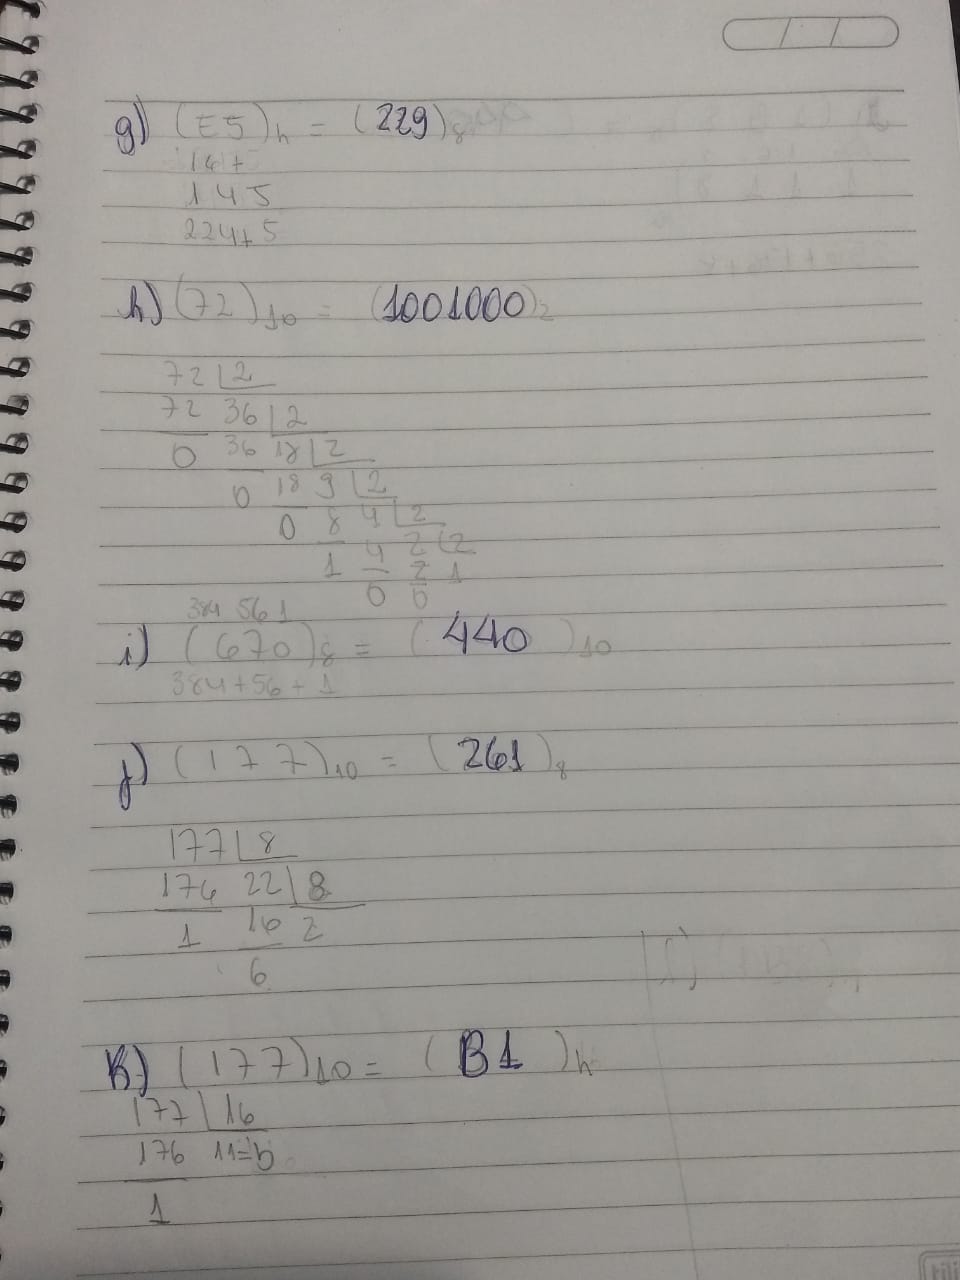 g) (E5)h = (229)8
14+
1 4 5
224+5
h) (72)10 = (1001000)2
72 2
72 36 2
0 36 18 2
0 18 9 2
0 8 4 2
1 4 2 2
0 2 1
0
384 56 1
i) (670)8 = (440)10
384+56+1
j) (177)10 = (261)8
177 8
176 22 8
1 16 2
6
k) (177)10 = (B1)h
177 16
176 11=b
1